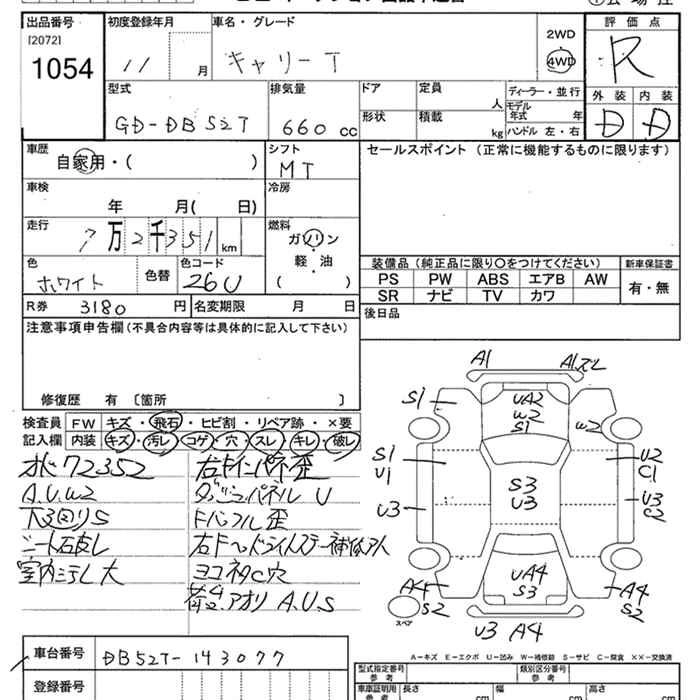 出品番号 初度登録年月 車名・グレード 評価点
[2072]
1054 11 月 キャリーT 2WD 4WD R
外装 内装
D D
型式 排気量 ドア 定員 人 ディーラー・並行
GD-DB52T 660 cc 形状 積載 kg モデル年式 年
ハンドル 左・右
車歴 シフト セールスポイント (正常に機能するものに限ります)
自家用・( ) MT
車検 冷房
年 月( 日)
走行 燃料
7万2千351 km ガソリン
軽・油
( )
色 色替 色コード 装備品 (純正品に限り○をつけてください) 新車保証書
ホワイト 26U PS PW ABS エアB AW 有・無
SR ナビ TV カワ
R券 3180 円 名変期限 月 日 後日品
注意事項申告欄 (不具合内容等は具体的に記入して下さい)
修復歴 有 〔箇所 〕
検査員 FW キズ・飛石・ヒビ割・リペア跡・×要
記入欄 内装 キズ・汚レ・コゲ・穴・スレ・キレ・破レ
72352
A.U.W2 ダッシュパネル U
シート
室内 大 ヨコネタC穴
アオリ A.U.S
A1 A1
S1 UA2
W2
S1
W2
S1
U1
U2
C1
S3
U3
U3 U3
C2
UA4
S3
A4
S2
A4
S2
スペア
U3 A4
車台番号 DB52T-143077
A-キズ E-エクボ U-凹み W-補修跡 S-サビ C-腐食 ××-交換済
登録番号 型式指定番号 参考 類別区分番号 参考
車庫証明用 参考 長さ cm 幅 cm 高さ cm